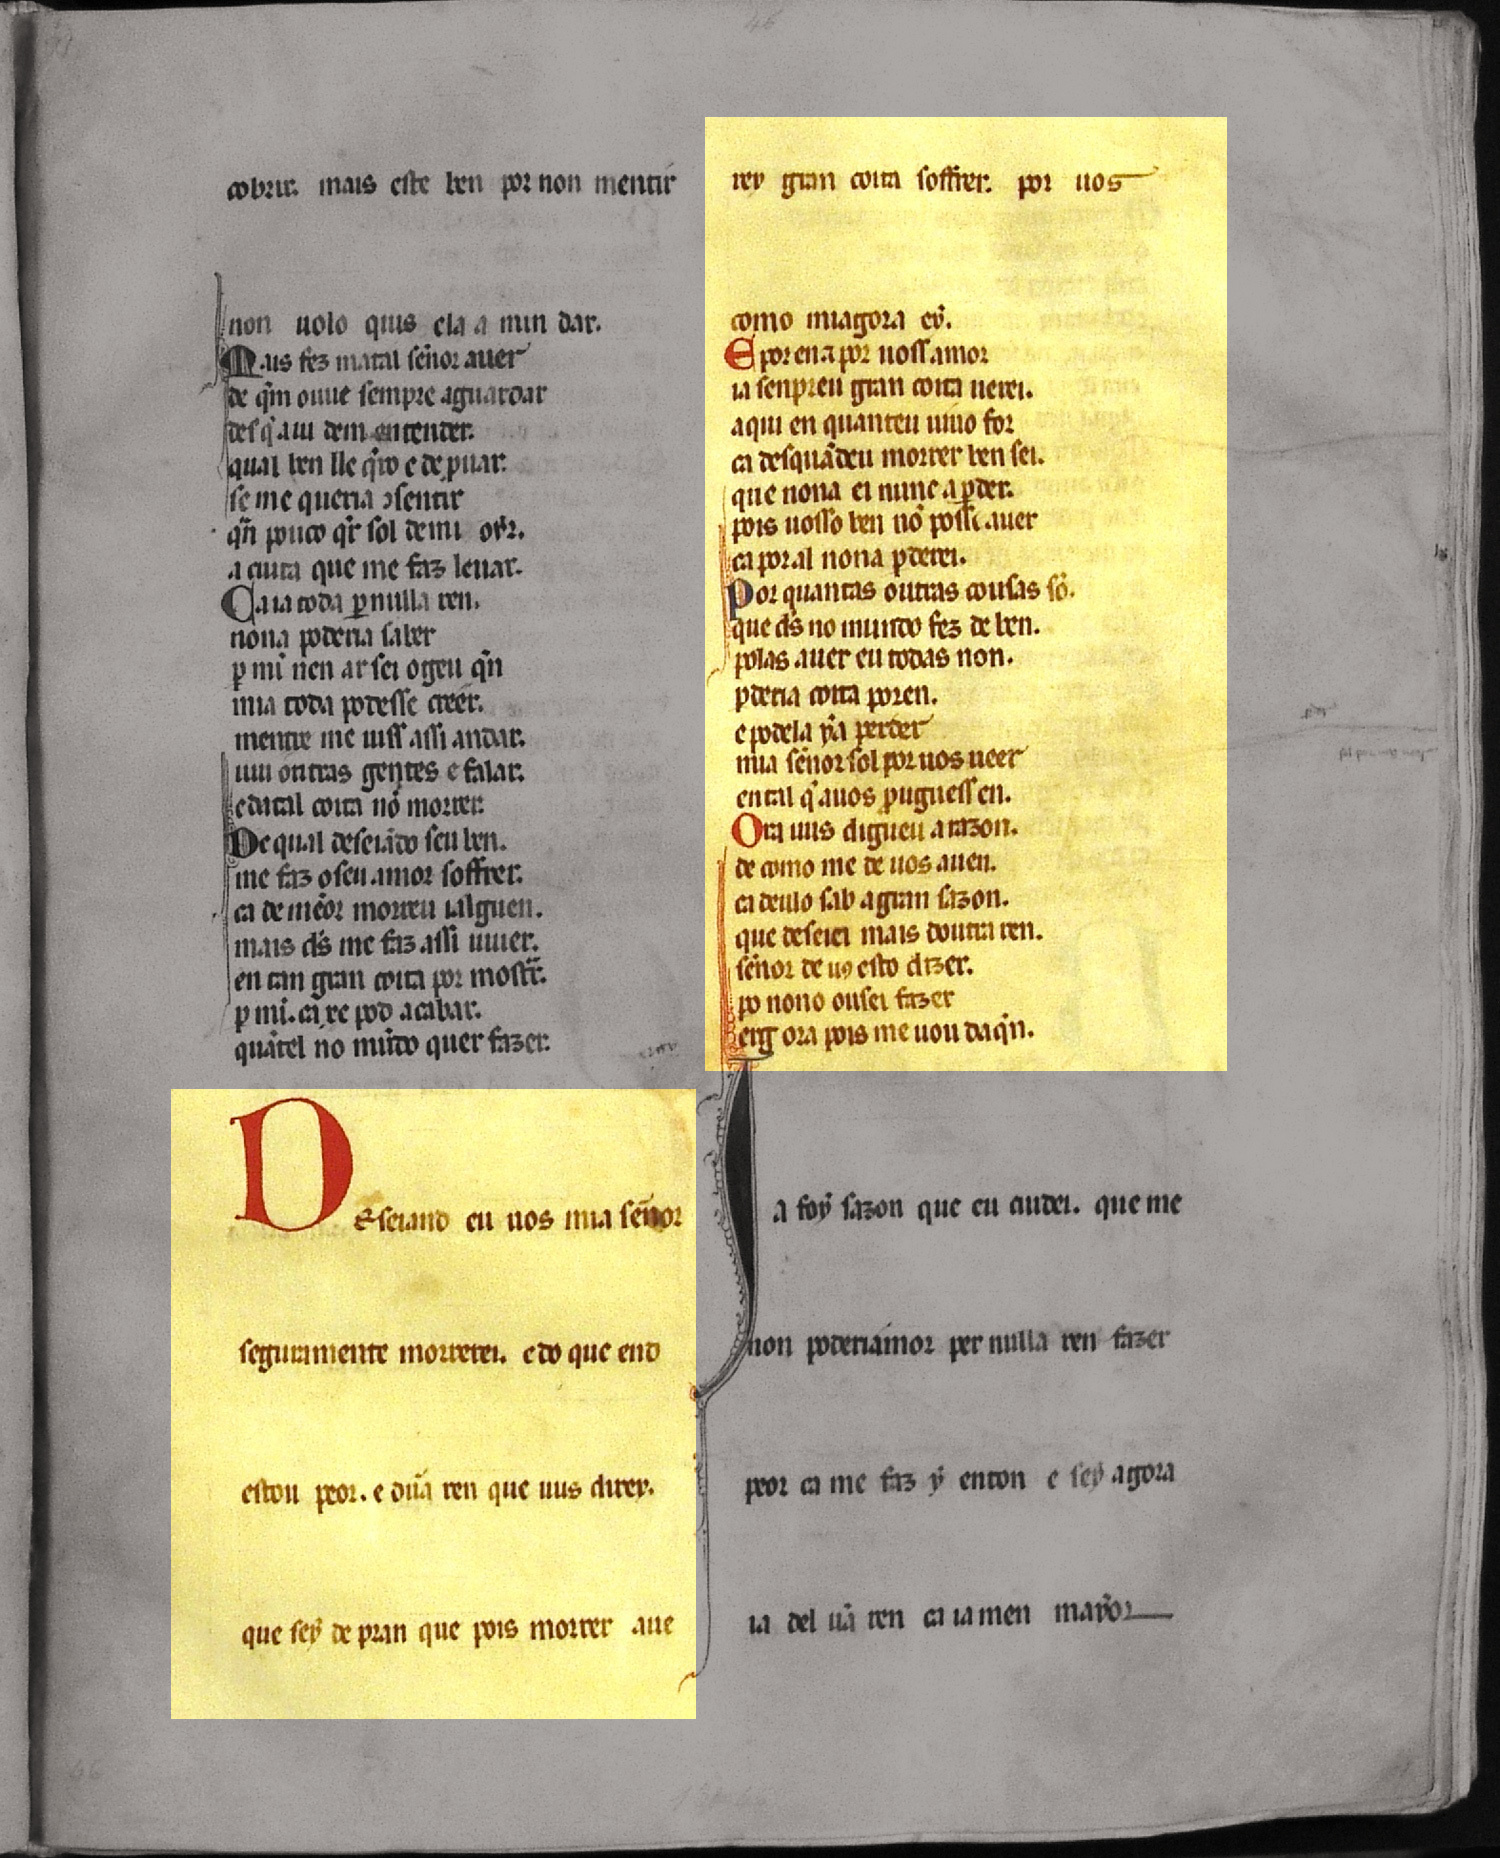 cobrir. mais este ben por non mentir
non uolo quis ela a min dar.
Mais fez matal señor auer
de q̃m ouue sempre aguardar
des q̃ a ui dem entender.
qual ben lle q̃ro e de ꝓuar.
se me queria ɔsentir
q̃n pouco q̃r sol de mi
a cuita que me faz leuar.
Ca ia toda ꝑ nulla ren.
nona poderia saber
ꝑ mi nen ar sei ogeu q̃n
mia toda podesse creer.
mentre me uiss assi andar.
uiu ontras gentes e falar.
e da tal coita nõ morrer.
De qual deseiãdo seu ben.
me faz o seu amor soffrer.
ca de mẽor morreu ialguen.
mais d̃s me faz assi uiuer.
en tan gran coita por mostr̃.
ꝑ mi. ca xe pod acabar.
quãtel no mũdo quer fazer.
Deseiand eu uos mia señor
seguramente morrerei. e do que end
estou peor. e dũa ren que uus direy.
que seẏ de pran que pois morrer aue
rey gran coita soffrer. por uos
como miagora eẏ.
E por ena por uoss amor
ia senpreu gran coita uerei.
aqui en quanteu uiuo for
ca desquãdeu morrer ben sei.
que nona ei nunc a ꝑder.
pois uosso ben nõ poss auer
ca por al nona ꝑderei.
Por quantas outras cousas sõ.
que d̃s no mundo fez de ben.
polas auer eu todas non.
ꝑderia coita poren.
e podela ẏa perder
mia señor sol por uos ueer
en tal q̃ a uos ꝓuguess en.
Ora uus digueu a razon.
de como me de uos auen.
ca deulo sab a gran sazon.
que deseiei mais doutra ren.
señor de uꝯ esto dizer.
ꝑo nono ousei fazer
erg ora pois me uou daq̃n.
Ja foẏ sazon que eu cuidei. que me
non poderiamor per nulla ren fazer
peor ca me faz ẏ enton e seẏ agora
ia del ũa ren ca ia men maẏor